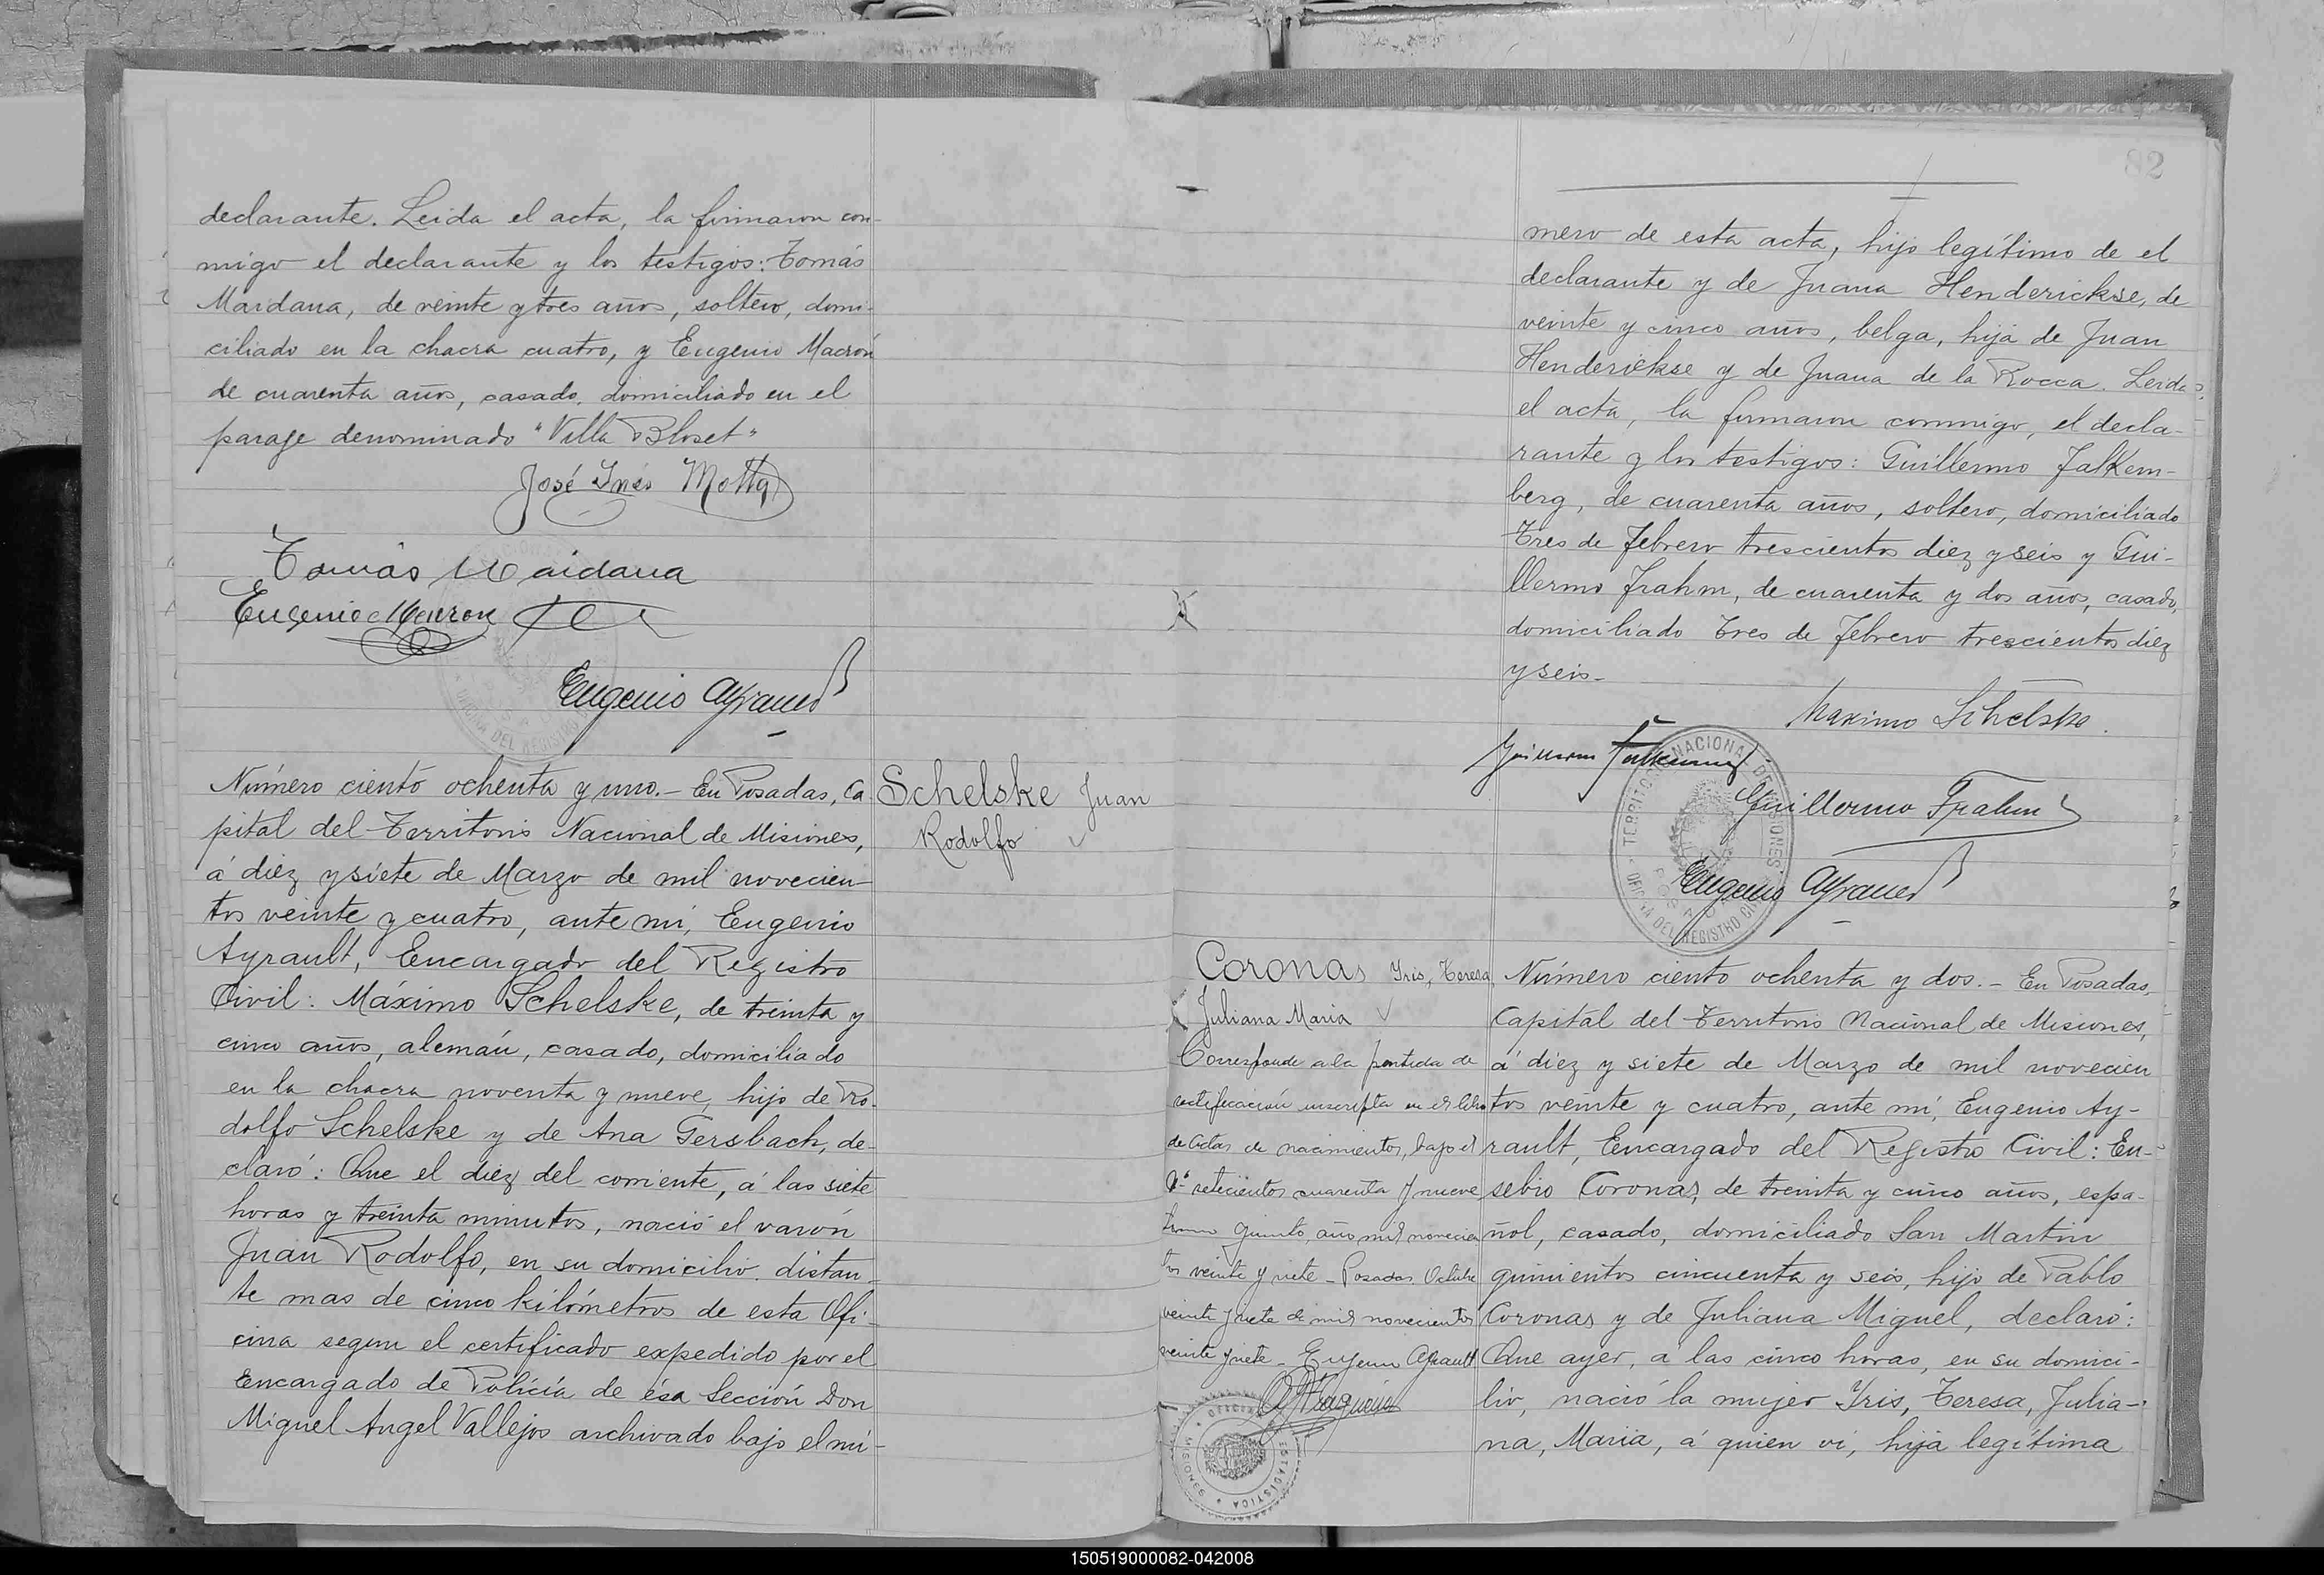 declarante. Leida el acta, la firmaron con-
migo el declarante y los testigos: Tomás
Maidana, de veinte y tres años, soltero, domi-
ciliado en la chacra cuatro, y Eugenio Macrón
de cuarenta años, casado, domiciliado en el
paraje denominado "Villa Bloset"
José Inés Motta
Tomás Maidana
Eugenio
Eugenio Ayrault
Número ciento ochenta y uno.- En Posadas, Ca
pital del Territorio Nacional de Misiones,
á diez y siete de Marzo de mil novecien-
tos veinte y cuatro, ante mí, Eugenio
Ayrault, Encargado del Registro
Civil: Máximo Schelske, de treinta y
cinco años, alemán, casado, domiciliado
en la chacra noventa y nueve, hijo de Ro-
dolfo Schelske y de Ana Gersbach, de-
claró: Que el diez del corriente, á las siete
horas y treinta minutos, nació el varón
Juan Rodolfo, en su domicilio distan-
te mas de cinco kilómetros de esta Ofi-
cina segun el certificado expedido por el
Encargado de Policía de ésa Sección Don
Miguel Angel Vallejos archivado bajo el nú-
Schelske Juan
Rodolfo
82
mero de esta acta, hijo legítimo de el
declarante y de Juana Henderickse, de
veinte y cinco años, belga, hija de Juan
Henderickse y de Juana de la Rocca. Leida
el acta, la firmaron conmigo, el decla-
rante y los testigos: Guillermo Falkem-
berg, de cuarenta años, soltero, domiciliado
Tres de Febrero trescientos diez y seis y Gui-
llermo Frahm, de cuarenta y dos años, casado,
domiciliado Tres de Febrero trescientos diez
y seis-
Maximo Schelske.
Guillermo
Guillermo Frahm
Eugenio Ayrault
TERRITORIO NACIONAL DE MISIONES
POSADAS
OFICINA DEL REGISTRO CIVIL
Coronas Iris, Teresa,
Juliana Maria
Corresponde a la partida de
rectificación inscripta en el libro
de actas de nacimientos, bajo el
Nº setecientos cuarenta y nueve
tomo quinto, año mil novecien
tos veinte y siete - Posadas, Octubre
veinte y siete de mil novecientos
veinte y siete - Eugenio Ayrault
OFICINA ESTADÍSTICA
MISIONES
Número ciento ochenta y dos.- En Posadas,
Capital del Territorio Nacional de Misiones,
á diez y siete de Marzo de mil novecien
tos veinte y cuatro, ante mí, Eugenio Ay-
rault, Encargado del Registro Civil: Eu-
sebio Coronas, de treinta y cinco años, espa-
ñol, casado, domiciliado San Martin
quinientos cincuenta y seis, hijo de Pablo
Coronas y de Juliana Miguel, declaró:
Que ayer, á las cinco horas, en su domici-
lio, nació la mujer Iris, Teresa, Julia-
na, Maria, á quien ví, hija legítima
150519000082-042008